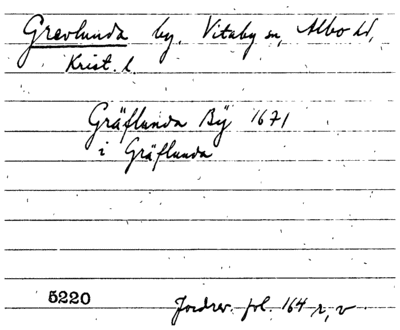 Grevlunda by. Vitaby sn, Albo hd,
Krist. l.
Gräflunda Bÿ 1671
i Gräflunda
5220 Jordrev. fol. 164 r, v